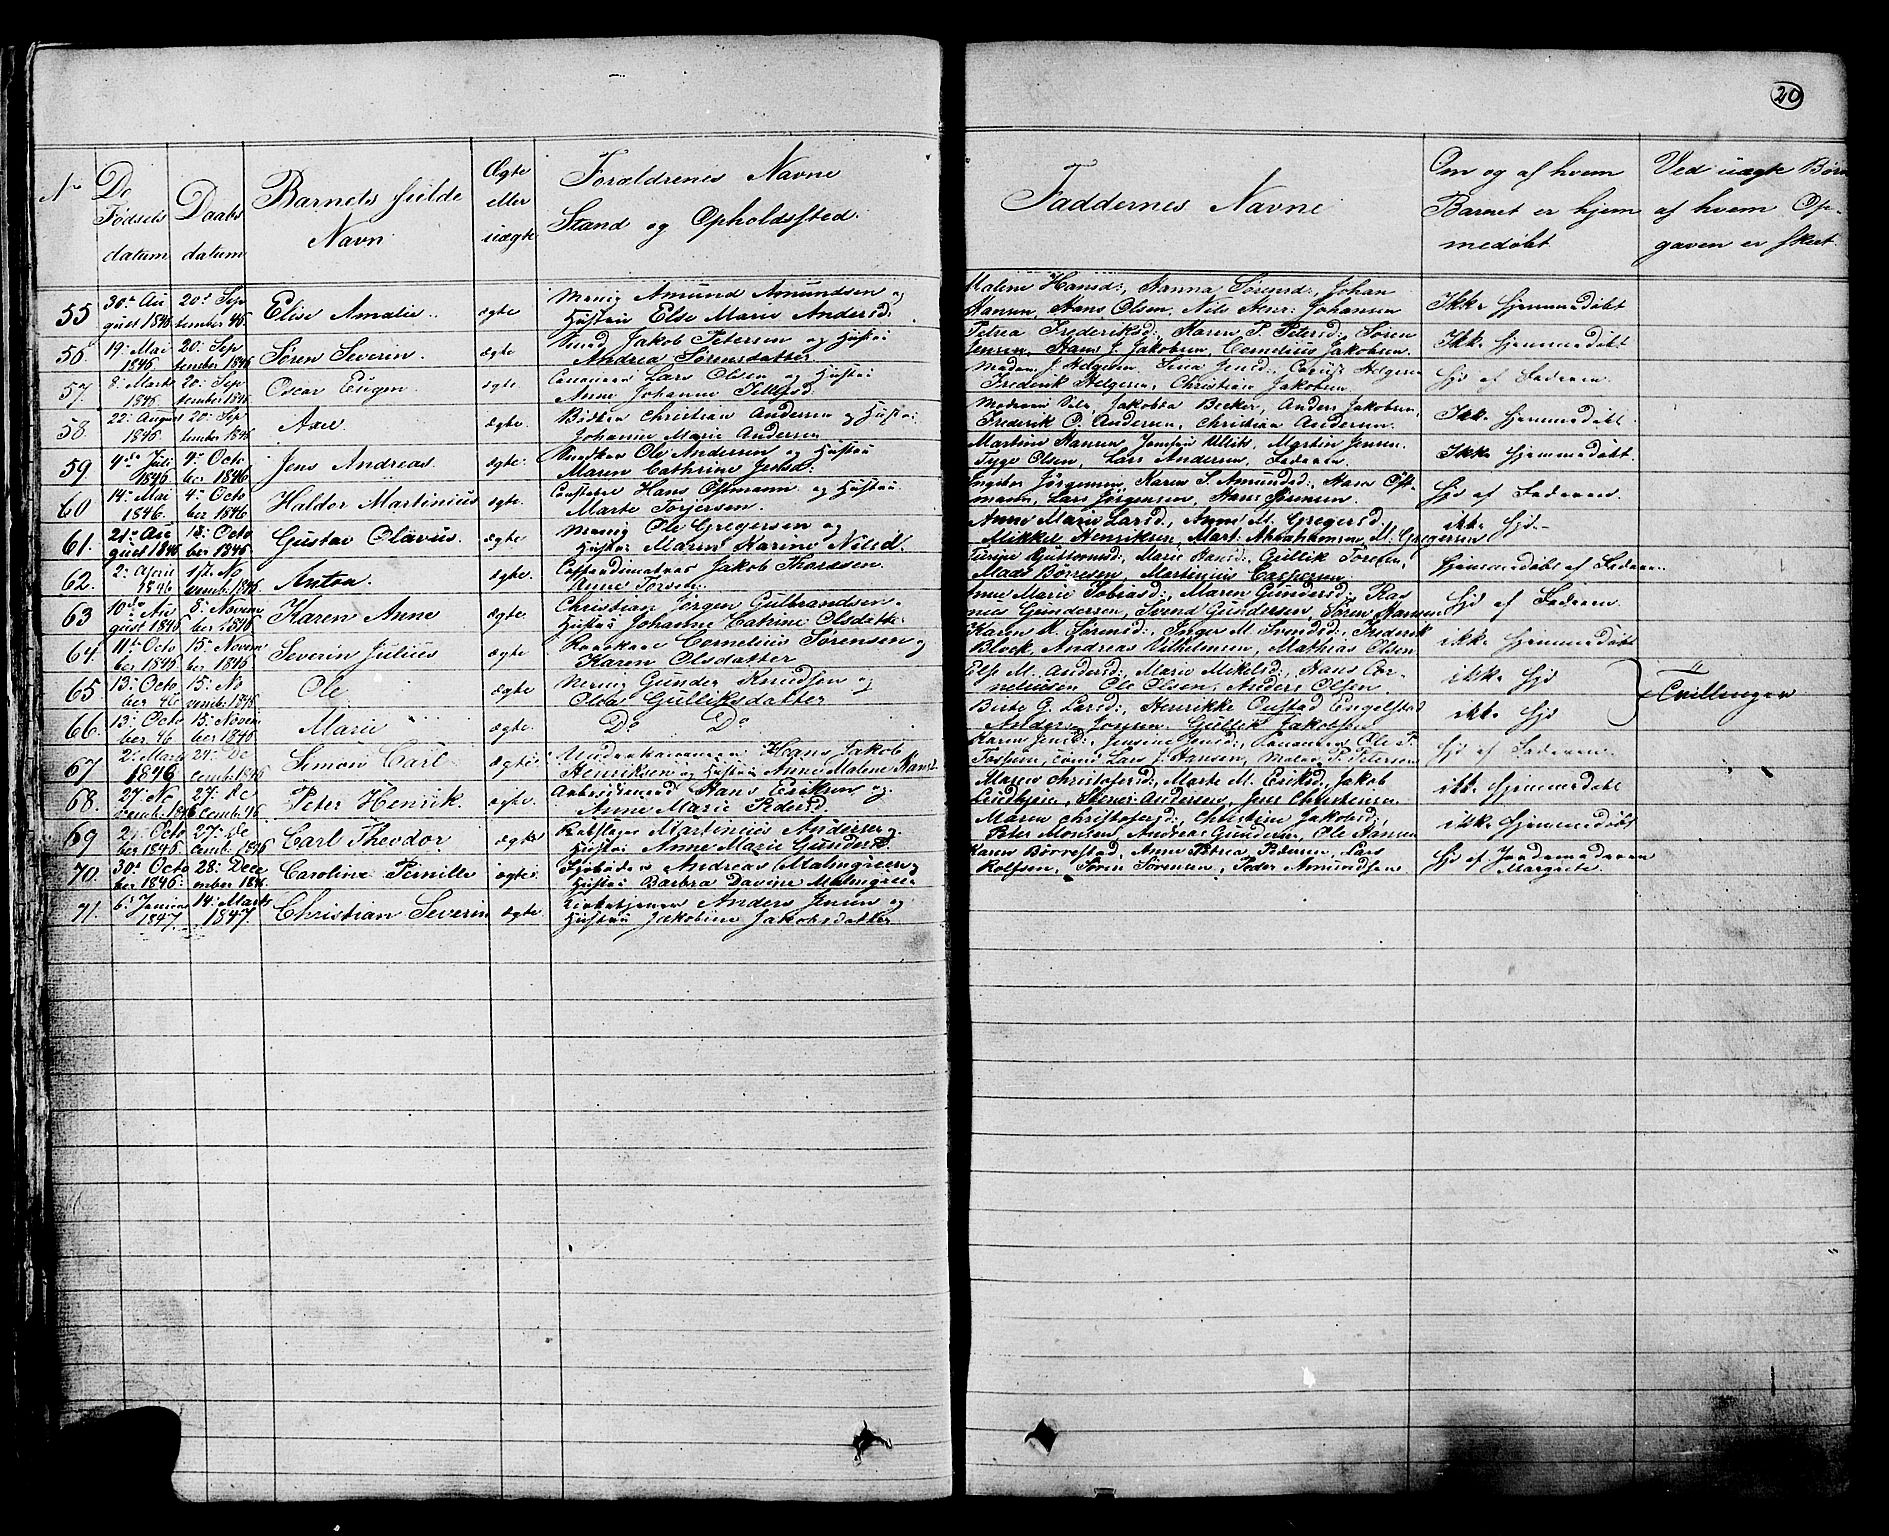 20
No
De Fødsels datum
Daabs datum
Barnets fulde Navn
Ægte eller uægte
Forældrenes Navne Stand og Opholdssted.
Faddernes Navne
Om og af hvem Barnet er hjemmedøbt
Ved uægte Børn af hvem Opgaven er skeet.
55 30te August 1846 20de September 46. Elise Amalie. ægte Amund Amundsen og Hustrue Else Marie Andersd: Malene Hansd:, Hanna Sørensd:, Johan Hansen, Hans Olsen, Nils Johansen Ikke hjemmedøbt
56. 19: Mai 1846 20: September 1846 Søren Severin. ægte Jakob Petersen og Hustrue Andrea Sørensdatter Petrea Frederiksd: Karen P. Petersd:, Søren Jensen, Hans J. Jakobsen, Cornelius Jakobsen. Ikke hjemmedøbt
57. 8: Marts 1846 20: September 1846 Oscar Eugen ægte Lars Olsen og Hustrue Anne Johanne Madam J. Helgesen Jensd:, Helgesen Frederik Helgesen, Christian Jakobsen hjd af Faderen.
58. 22: August 1846 20: September 1846 Axel ægte. Christian Andersen og Hustrue Johanne Marie Andersen Jakobea Becker, Anders Jakobsen, Frederik O. Andersen, Christian Andersen. Ikke hjemmedøbt.
59. 4de Juli 1846 4: October 1846 Jens Andreas. ægte. Ole Andersen og Hustrue Maren Cathrine Martine Hansen, Martin Jensen. Tyge Olsen, Lars Andersen, Faderen. Ikke hjemmedøbt.
60 14: Mai 1846. 4: October 1846 Haldor Martinius ægte. Hans Østmann og Hustrue Marte Torjersen. Ingebor Jørgensen, Karen S. Amundsd:, Hans Østmann, Lars Jørgensen, Hans Sørensen. hjd af Faderen.
61. 21: August 1846 18: October 1846 Gustav Olavus. ægte Ole Gregersen og Hustrue Maren Karine Nilsd. Anne Marie Larsd., Anne M. Gregersd. Mikkel Henriksen, Mart. Abrahamsen, M. Gregersen ikke hjd.
62. 2: April 1846 1ste November 1846 Anton. ægte. Jakob Thoresen. Anne Marie Hansd:, Gullik Mads Børresen, Martinius Caspersen. hjemmedøbt af Faderen.
63 10de August 1846 8: November 1846 Karen Anne ægte. Christian Jørgen Gulbrandsen. Hustrue Johanne Catrine Olsdatter. Anne Marie Tobiasd:, Maren Gundersd:, Rasmus Gundersen, Svend Gundersen, Søren Hansen hjd af Faderen.
64. 11te October 1846 15: November 1846 Severin Julius ægte Cornelius Sørensen og Karen Olsdatter Karen M. Sørensd:, Inger M. Svendsd:, Frederik Block, Andreas Vilhelmsen, Mathias Olsen ikke hjemmedøbt
65 13: October 46 15: November 1846 Ole ægte Gunder Knudsen og Olea Gulliksdatter Else M. Andersd:, Marie Mikelsd:, Hans Corneliusen, Ole Olsen, Anders Olsen. ikke hjd
Tvillinger
66. 13: October 46 15: November 1846 Marie ægte. Do Do Berte G. Larsd:, Henrikke Engelstad Anders Jonsen. Gullik Jakobsen ikke hjd
67 2: Marts 1846 24: December 1846 Simon Carl ægte Hans Jakob Henriksen og Hustrue Anne Malene Hansd Karen Jensd:, Jensine Jensd:, Ole T. Lars J. Hansen, P. Petersen hjd af Faderen.
68. 27: November 1846 27: December 46 Peter Henrik. ægte. Arbeidsmand Hans Eriksen og Anne Marie Pedersd. Maren Christofersd:, Marte M. Eriksd:, Jakob Andersen, Jens Christensen ikke hjemmedøbt
69 2: October 1846 27: December 1846 Carl Theodor ægte Martinius Andersen og Hustrue Anne Marie Gundersd. Maren Christofersd:, Christine Jakobsd:, Peter Monsen, Andreas Gundersen, Ole Hansen ikke hjemmedøbt
70. 30te October 1846. 28: December 1846 Caroline Pernille ægte. Andreas Malmgreen og Hustrue Barbra Davine Malmgreen Karen Børrestad, Anne Petrea Pedersen, Lars Rolfsen, Søren Sørensen, Peder Amundsen hjd af Jordemoderen Margrete.
71. 6: Januar 1847. 14: Marts 1847. Christian Severin ægte. Anders Jensen og Hustrue Jakobine Jakobsdatter